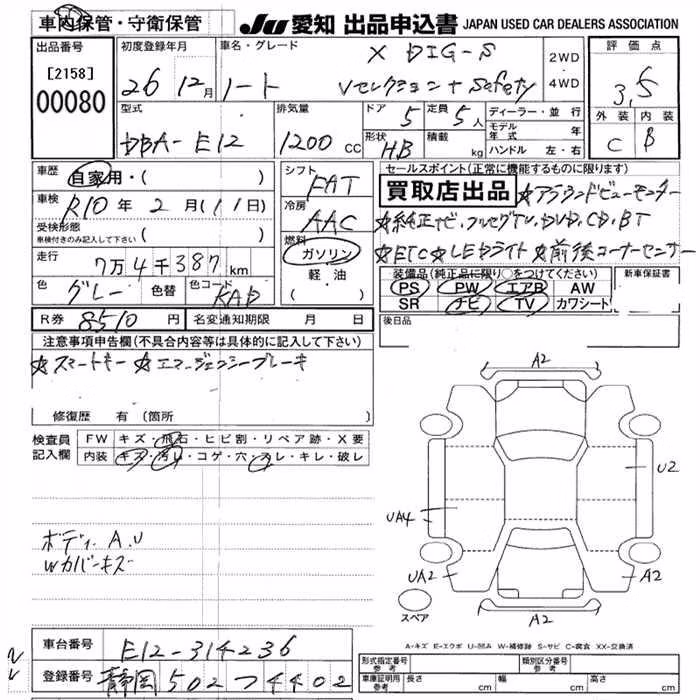 車内保管・守衛保管
JU 愛知 出品申込書 JAPAN USED CAR DEALERS ASSOCIATION
出品番号
[2158]
00080
初度登録年月
26 12月
車名・グレード
X DIG-S
ノート Vセレクション+Safety
2WD
・
4WD
評価点
3.5
外装 内装
C B
型式
DBA-E12
排気量
1200 CC
ドア 5
定員 5人
形状 HB
積載 kg
ディーラー・並行
モデル年式 年
ハンドル 左・右
車歴
自家用・( )
車検
R10年2月(11日)
受検形態
車検付きのみ記入して下さい ( )
走行
7万4千387km
色 グレー 色替
色コード KAD
シフト
FAT
冷房
AAC
燃料
ガソリン
軽油
( )
セールスポイント(正常に機能するものに限ります)
買取店出品 ☆アラウンドビューモニター
☆純正ナビ、フルセグTV、DVD、CD、BT
☆ETC ☆LEDライト ☆前後コーナーセンサー
装備品(純正品に限り○をつけてください)
PS PW エアB AW
SR ナビ TV カワシート
新車保証書
後日品
R券 8510 円 名変通知期限 月 日
注意事項申告欄(不具合内容等は具体的に記入して下さい)
☆スマートキー ☆エマージェンシーブレーキ
修復歴 有(箇所 )
検査員
記入欄
FW キズ・飛石・ヒビ割・リペア跡・X要
内装 キズ・汚レ・コゲ・穴・スレ・キレ・破レ
ボディ A.U
Wカバーキズ
A2
U2
UA4
UA2
A2
A2
スペア
A-キズ E-エクボ U-凹み W-補修跡 S-サビ C-腐食 XX-交換済
車台番号 E12-314236
登録番号 静岡 502 つ 4402
型式指定番号
参考
類別区分番号
参考
車庫証明用
参考
長さ cm 幅 cm 高さ cm